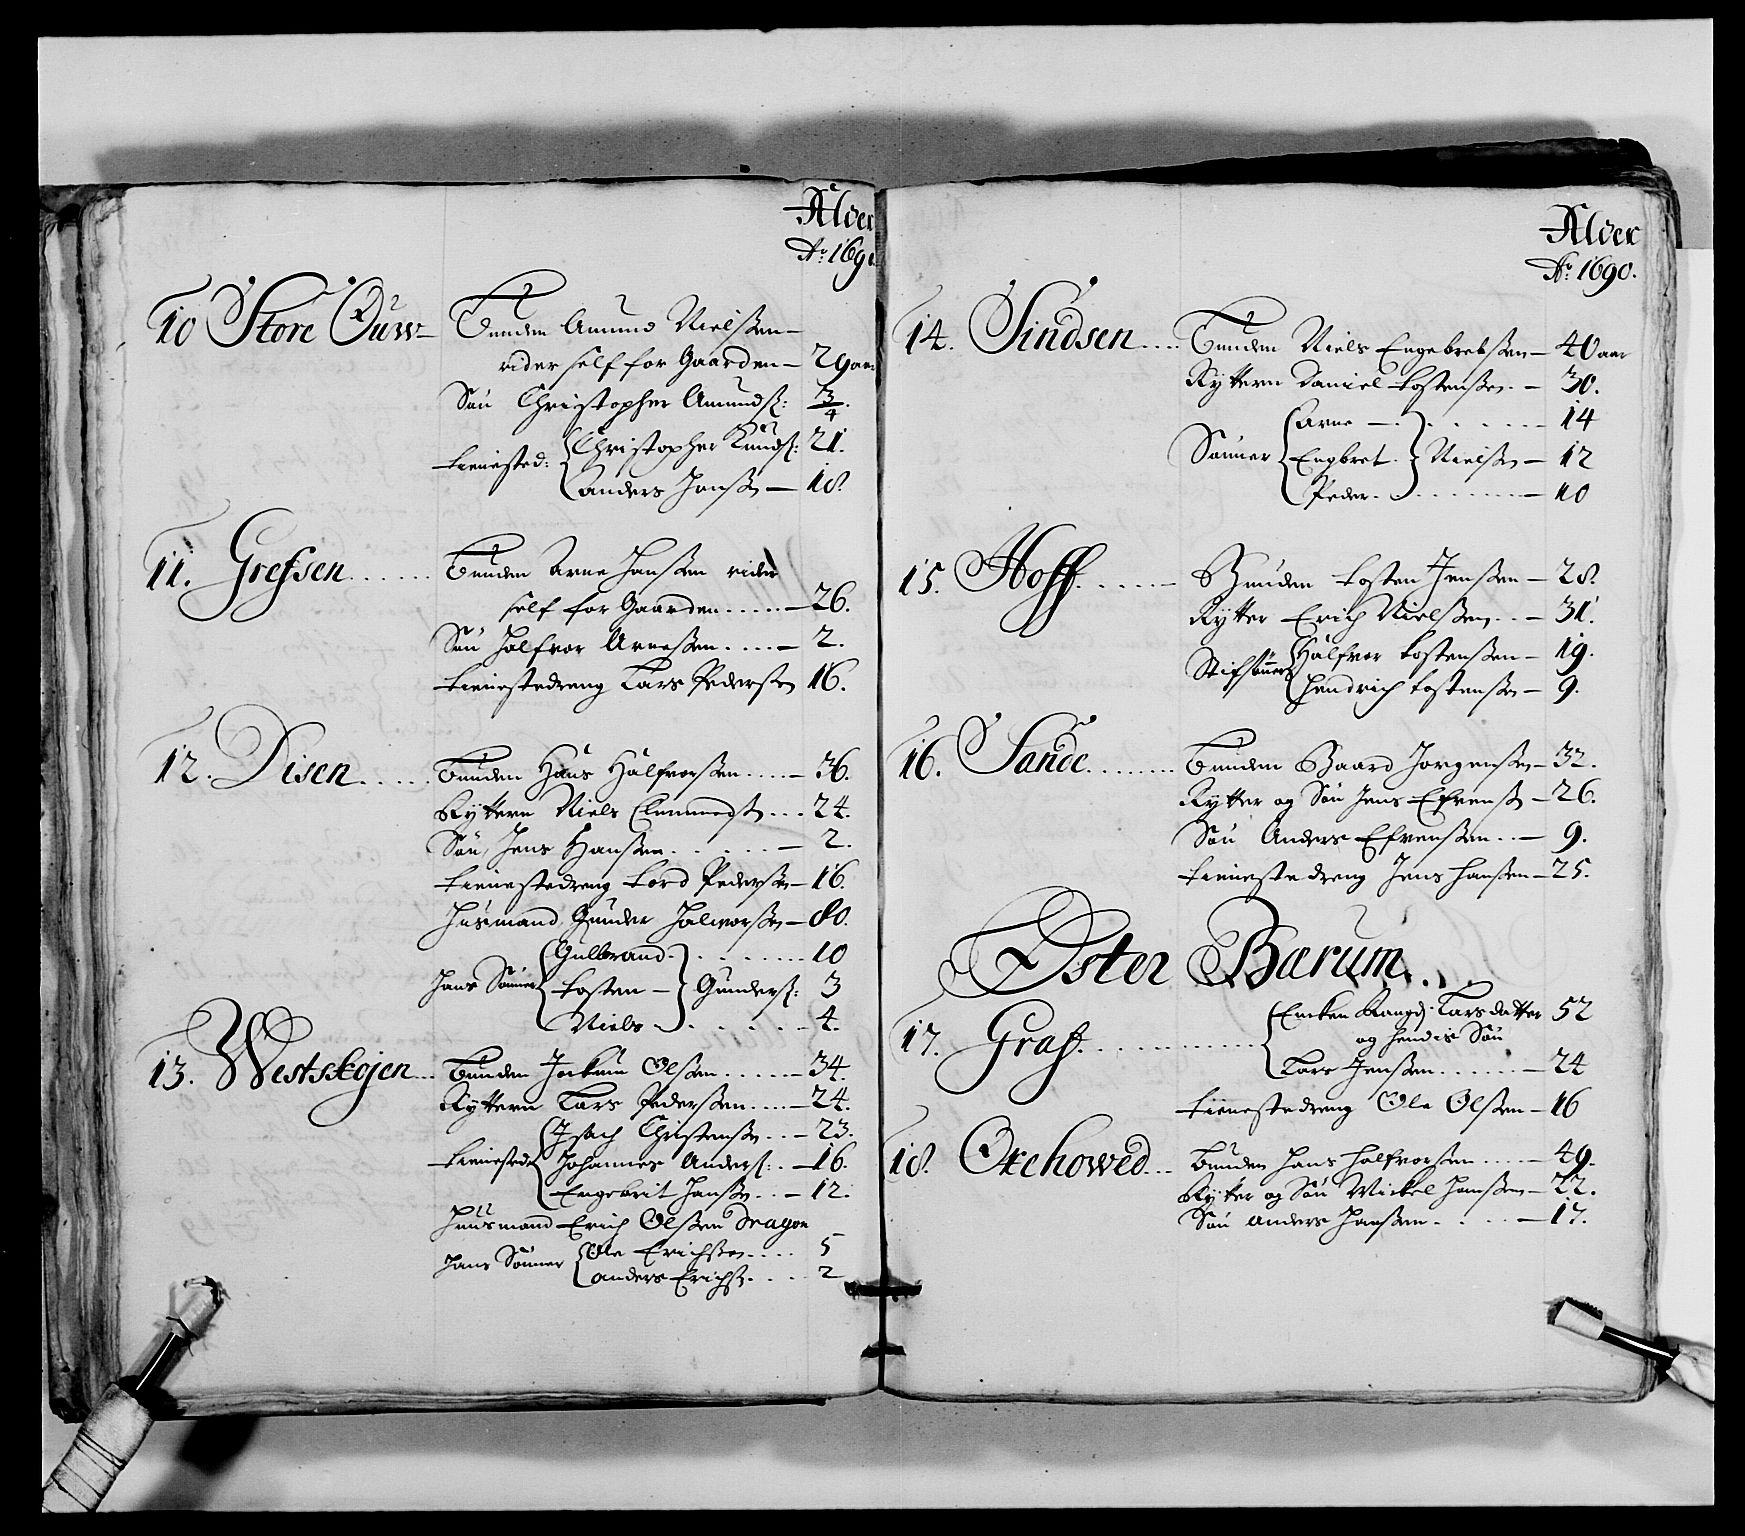 Alder
Ao. 1690
10 Store Ouw Bunden Amund Nielssen
rider self for Gaarden 29 aar
Søn Christopher Amundss: 3/4.
Tienisted: Christopher Knudss: 21.
Anders Hanss 18.
11. Grefsen Bunden Arne Hanssen rider
self for Gaarden 26.
Søn Halfvor Arnessen 2.
Tienistedreng Lars Pederss 16.
12. Disen Bunden Hans Halfvorssen 36.
Rytteren Niels Clemmedss 24.
Søn, Jens Hanssen 2.
Tienistedreng Tord Pederss 16.
Husmand Gunder Halvorss 80.
Hans Sønner Gulbrand 10
Tosten Gunderss: 3
Niels 4.
13. Westskojen Bunden Jockum Olssen 34.
Rytteren Lars Pederssen 24.
Tienisted: Isach Christenss 23.
Johannes Anderss: 16.
Engebrit Hanss 12.
Husmand Erich Olssen Dragon
Hans Sønner Ole Erichssen 5
Anders Erichss 2
Alder
Ao. 1690.
14. Sindsen Bunden Niels Engebretssen 40 aar
Rytteren Daniel Tostenssen 30.
Sønner Arne 14
Engbret Nielss 12
Peder 10
15. Hoff Bunden Tosten Jenssen 28.
Rytter Erich Nielssen 31.
Stifsønner Halfvor Tostenssen 19.
Hendrich Tostenss 9.
16. Sande Bunden Baard Jorgenss 32.
Rytter og Søn Jens Efvenss 26.
Søn Anders Efvenssen 9.
Tienistedreng Jens Hansen 25.
Øster Bærum
17. Graf Encken Rangdj Larsdatter 52
og hendis Søn
Lars Jenssen 24
Tienistedreng Ole Olssen 16
18. Oxehowed Bunden Hans Halfvorssen 49.
Rytter og Søn Mickel Hanssen 22.
Søn Anders Hanssen 17.